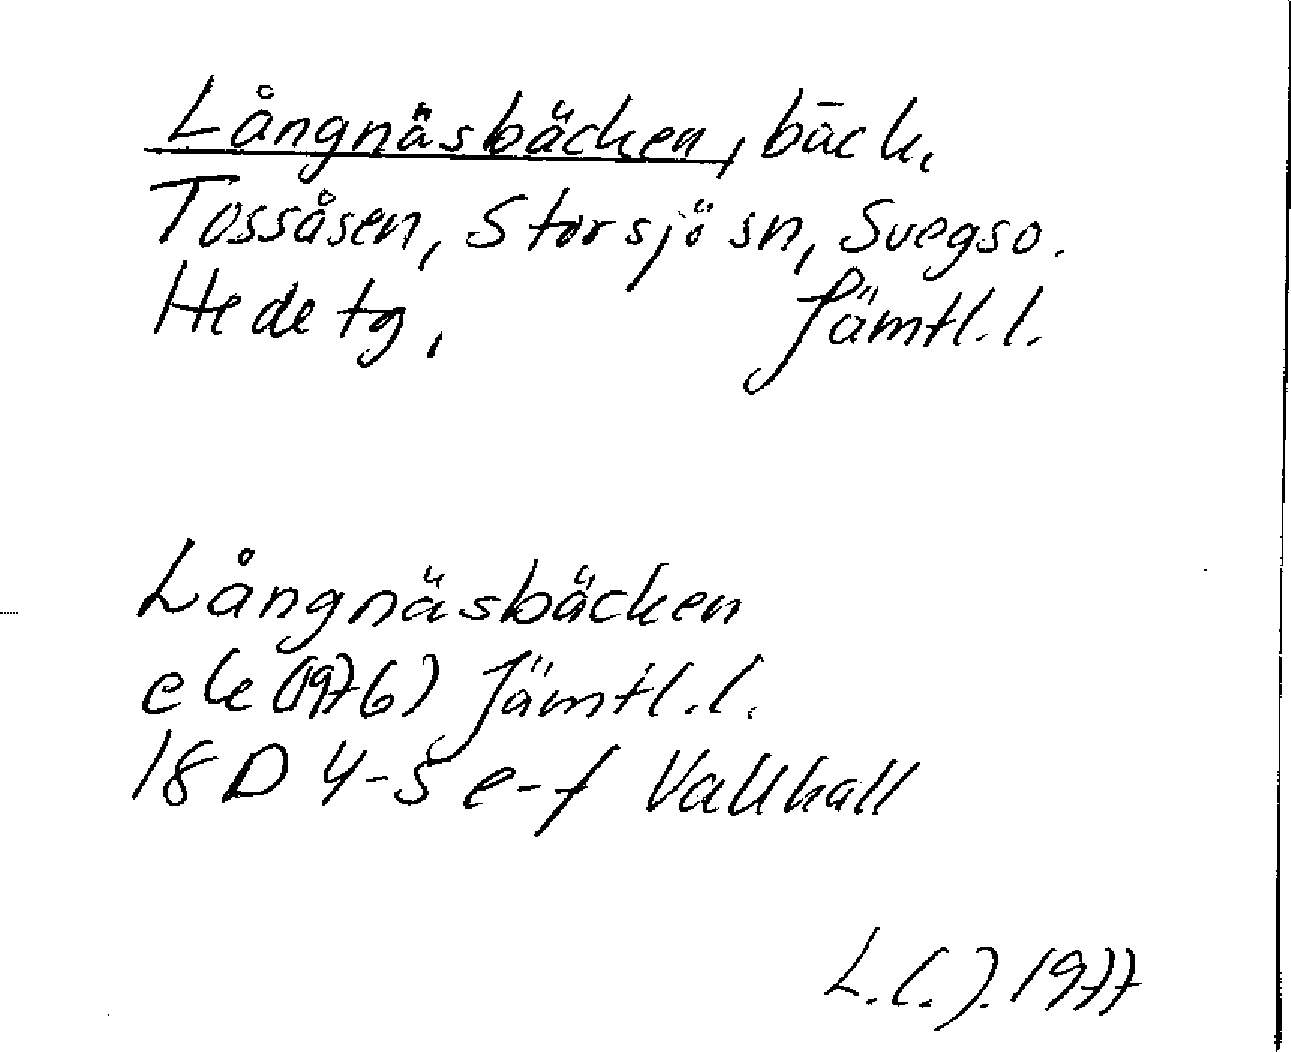 Långnäsbäcken, bäck,
Tossåsen, Storsjö sn, Svegs o.
Hede tg, Jämtl. l.
Långnäsbäcken
ek (1976) Jämtl. l.
18 D 4-5 e-f Vallhall
L. C. J. 1977